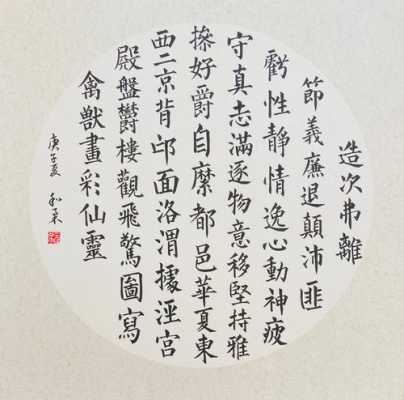 造次弗離
節義廉退顛沛匪
虧性靜情逸心動神疲
守真志滿逐物意移堅持雅
操好爵自縻都邑華夏東
西二京背邙面洛渭據涇宮
殿盤鬱樓觀飛驚圖寫
禽獸畫彩仙靈
庚子夏 和